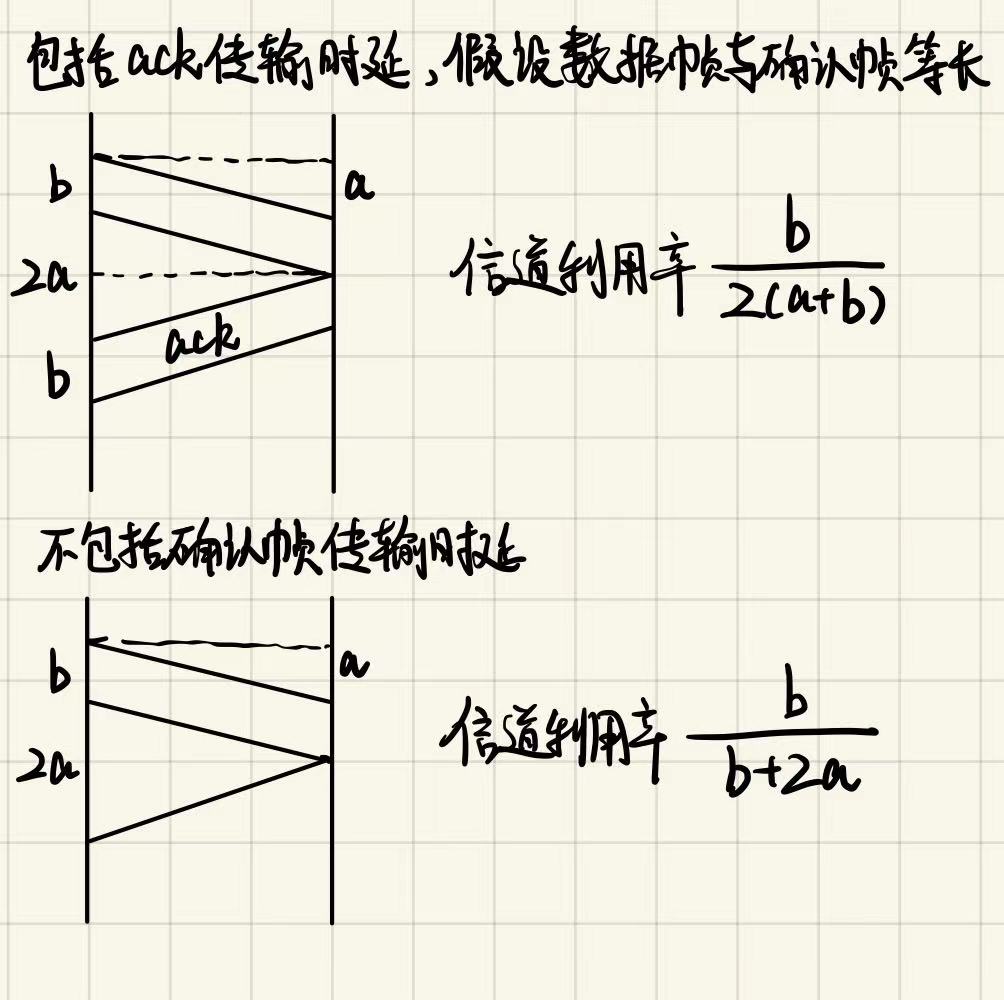 包括ack传输时延,假设数据帧与确认帧等长
b
a
2a
ack
b
信道利用率 b/2(a+b)
不包括确认帧传输时延
b
a
2a
信道利用率 b/b+2a